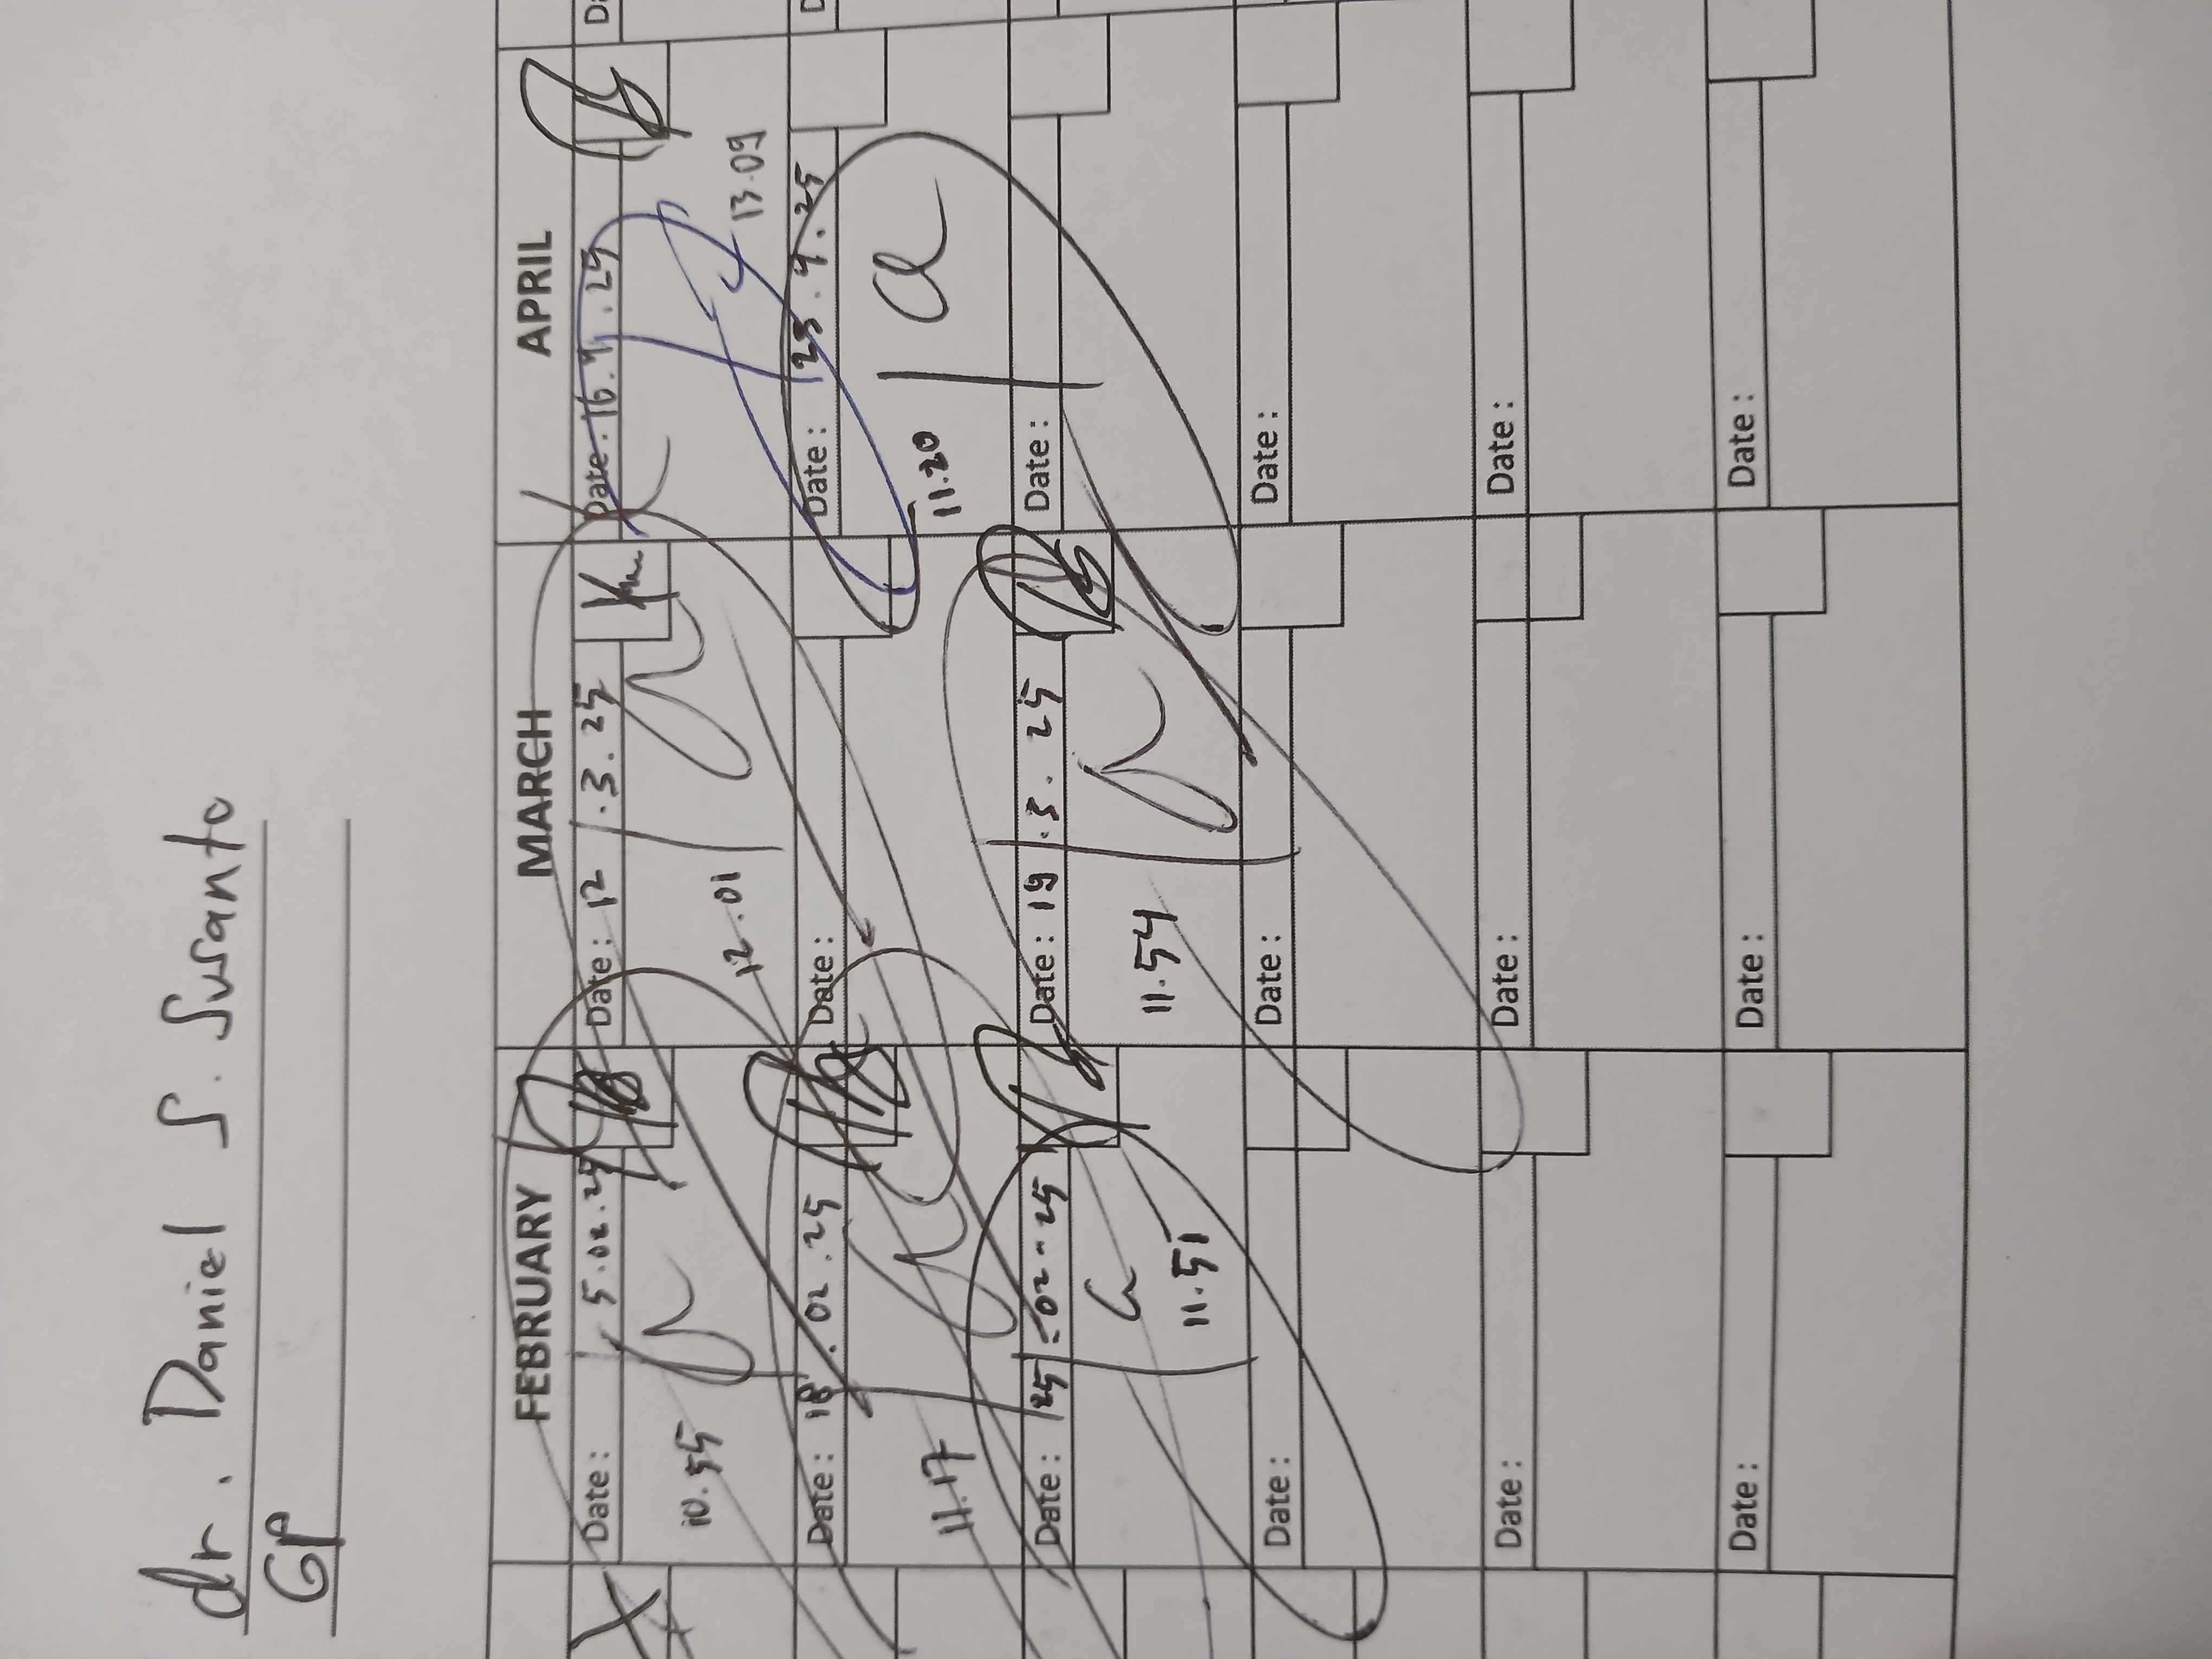 dr. Daniel S. Susanto
GP
FEBRUARY MARCH APRIL
Date: 5.02.25 Date: 12.3.25 Date: 16.4.25
10.55 12.01 13.09
Date: 18.02.25 Date: Date: 23.4.25
11.17 11.20
Date: 25-02-25 Date: 19.3.25 Date:
11.51 11.54
Date: Date: Date:
Date: Date: Date:
Date: Date: Date: